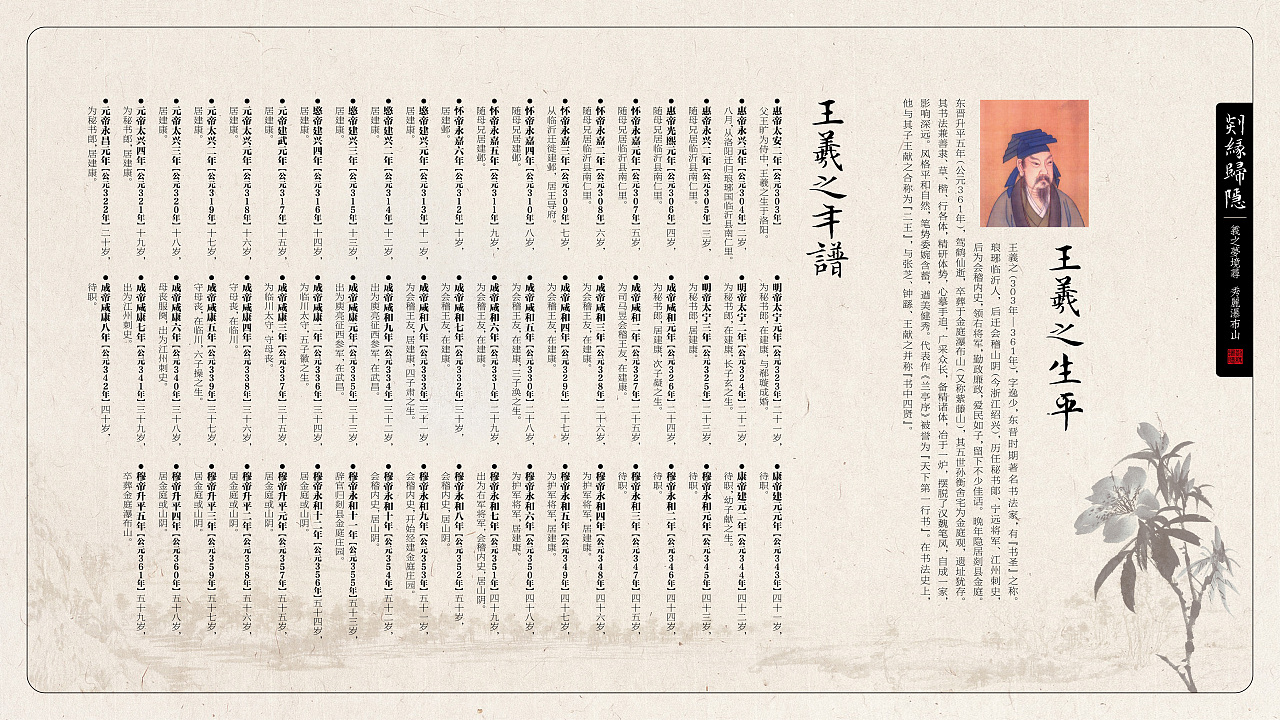 剡緣歸隱
羲之夢境尋 秀麗瀑布山
王羲之生平
王羲之（303年—361年），字逸少，东晋时期著名书法家，有『书圣』之称。
琅琊临沂人，后迁会稽山阴（今浙江绍兴），历任秘书郎、宁远将军、江州刺史，
后为会稽内史，领右将军，勤政廉政，爱民如子，留下不少佳话。晚年隐居剡县金庭。
东晋升平五年（公元361年），驾鹤仙逝，卒葬于金庭瀑布山（又称紫藤山），其五世孙衡舍宅为金庭观，遗址犹存。
其书法兼善隶、草、楷、行各体，精研体势，心摹手追，广采众长，备精诸体，冶于一炉，摆脱了汉魏笔风，自成一家，
影响深远。风格平和自然，笔势委婉含蓄，遒美健秀。代表作《兰亭序》被誉为『天下第一行书』。在书法史上，
他与其子王献之合称为『二王』，与张芝、钟繇、王献之并称『书中四贤』。
王羲之年譜
惠帝太安二年【公元303年】
父王旷为侍中，王羲之生于洛阳。
惠帝永兴元年【公元304年】二岁，
八月，从洛阳迁归琅琊国临沂县南仁里。
惠帝永兴二年【公元305年】三岁，
随母兄居临沂县南仁里。
惠帝光熙元年【公元306年】四岁，
随母兄居临沂县南仁里。
怀帝永嘉元年【公元307年】五岁，
随母兄居临沂县南仁里。
怀帝永嘉二年【公元308年】六岁，
随母兄居临沂县南仁里。
怀帝永嘉三年【公元309年】七岁，
从沂迁徙建邺，居王导府。
怀帝永嘉四年【公元310年】八岁，
随母兄居建邺。
怀帝永嘉五年【公元311年】九岁，
随母兄居建邺。
怀帝永嘉六年【公元312年】十岁，
居建邺。
愍帝建兴元年【公元313年】十一岁，
居建康。
愍帝建兴二年【公元314年】十二岁，
居建康。
愍帝建兴三年【公元315年】十三岁，
居建康。
愍帝建兴四年【公元316年】十四岁，
居建康。
元帝建武元年【公元317年】十五岁，
居建康。
元帝太兴元年【公元318年】十六岁，
居建康。
元帝太兴二年【公元319年】十七岁，
居建康。
元帝太兴三年【公元320年】十八岁，
居建康。
元帝太兴四年【公元321年】十九岁，
为秘书郎，居建康。
元帝永昌元年【公元322年】二十岁，
为秘书郎，居建康。
明帝太宁元年【公元323年】二十一岁，
为秘书郎，在建康，与郗璇成婚。
明帝太宁二年【公元324年】二十二岁，
为秘书郎，在建康，长子玄之生。
明帝太宁三年【公元325年】二十三岁，
为秘书郎，居建康。
成帝咸和元年【公元326年】二十四岁，
为秘书郎，居建康，次子凝之生。
成帝咸和二年【公元327年】二十五岁，
为司马昱会稽王友，在建康。
成帝咸和三年【公元328年】二十六岁，
为会稽王友，在建康。
成帝咸和四年【公元329年】二十七岁，
为会稽王友，在建康。
成帝咸和五年【公元330年】二十八岁，
为会稽王友，在建康，三子涣之生。
成帝咸和六年【公元331年】二十九岁，
为会稽王友，在建康。
成帝咸和七年【公元332年】三十岁，
为会稽王友，在建康。
成帝咸和八年【公元333年】三十一岁，
为会稽王友，居建康，四子肃之生。
成帝咸和九年【公元334年】三十二岁，
出为庾亮征西参军，在武昌。
成帝咸康元年【公元335年】三十三岁，
出为庾亮征西参军，在武昌。
成帝咸康二年【公元336年】三十四岁，
为临川太守，五子徽之生。
成帝咸康三年【公元337年】三十五岁，
为临川太守，守母丧。
成帝咸康四年【公元338年】三十六岁，
守母丧，在临川。
成帝咸康五年【公元339年】三十七岁，
守母丧，在临川，六子操之生。
成帝咸康六年【公元340年】三十八岁，
母丧服阕，出为江州刺史。
成帝咸康七年【公元341年】三十九岁，
出为江州刺史。
成帝咸康八年【公元342年】四十岁，
待职。
康帝建元元年【公元343年】四十一岁，
待职。
康帝建元二年【公元344年】四十二岁，
待职，幼子献之生。
穆帝永和元年【公元345年】四十三岁，
待职。
穆帝永和二年【公元346年】四十四岁，
待职。
穆帝永和三年【公元347年】四十五岁，
待职。
穆帝永和四年【公元348年】四十六岁，
为护军将军，居建康。
穆帝永和五年【公元349年】四十七岁，
为护军将军，居建康。
穆帝永和六年【公元350年】四十八岁，
为护军将军，居建康。
穆帝永和七年【公元351年】四十九岁，
出为右军将军，会稽内史，居山阴。
穆帝永和八年【公元352年】五十岁，
会稽内史，居山阴。
穆帝永和九年【公元353年】五十一岁，
会稽内史，开始经建金庭庄园。
穆帝永和十年【公元354年】五十二岁，
会稽内史，居山阴。
穆帝永和十一年【公元355年】五十三岁，
辞官归剡县金庭庄园。
穆帝永和十二年【公元356年】五十四岁，
居金庭或山阴。
穆帝升平元年【公元357年】五十五岁，
居金庭或山阴。
穆帝升平二年【公元358年】五十六岁，
居金庭或山阴。
穆帝升平三年【公元359年】五十七岁，
居金庭或山阴。
穆帝升平四年【公元360年】五十八岁，
居金庭或山阴。
穆帝升平五年【公元361年】五十九岁，
卒葬金庭瀑布山。